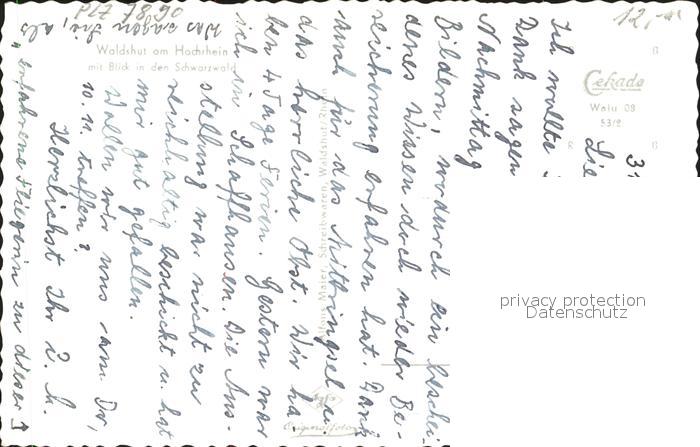 PLZ 7890
12,-
Waldshut am Hochrhein
mit Blick in den Schwarzwald
Cekade
Walu 08
53/2
Alfons Maier, Schreibwaren, Waldshut/Rhein
Originalfoto
31
Lie
Ich wollte
Dank sagen
Nachmittag
Bildern, wodurch ein beschei-
denes Wissen doch wieder Be-
reicherung erfahren hat. Dank
auch für das Mitbringsel u.
das herrliche Obst. Wir ha-
ben 4 Tage Ferien. Gestern war
ich in Schaffhausen. Die Aus-
stellung war nicht zu
reichhaltig beschickt u. hat
mir gut gefallen.
Wollen wir uns am Do,
10. 11. treffen?
Herzlichst Ihr
Was sagen Sie, als
erfahrene Fliegerin zu dieser
privacy protection
Datenschutz